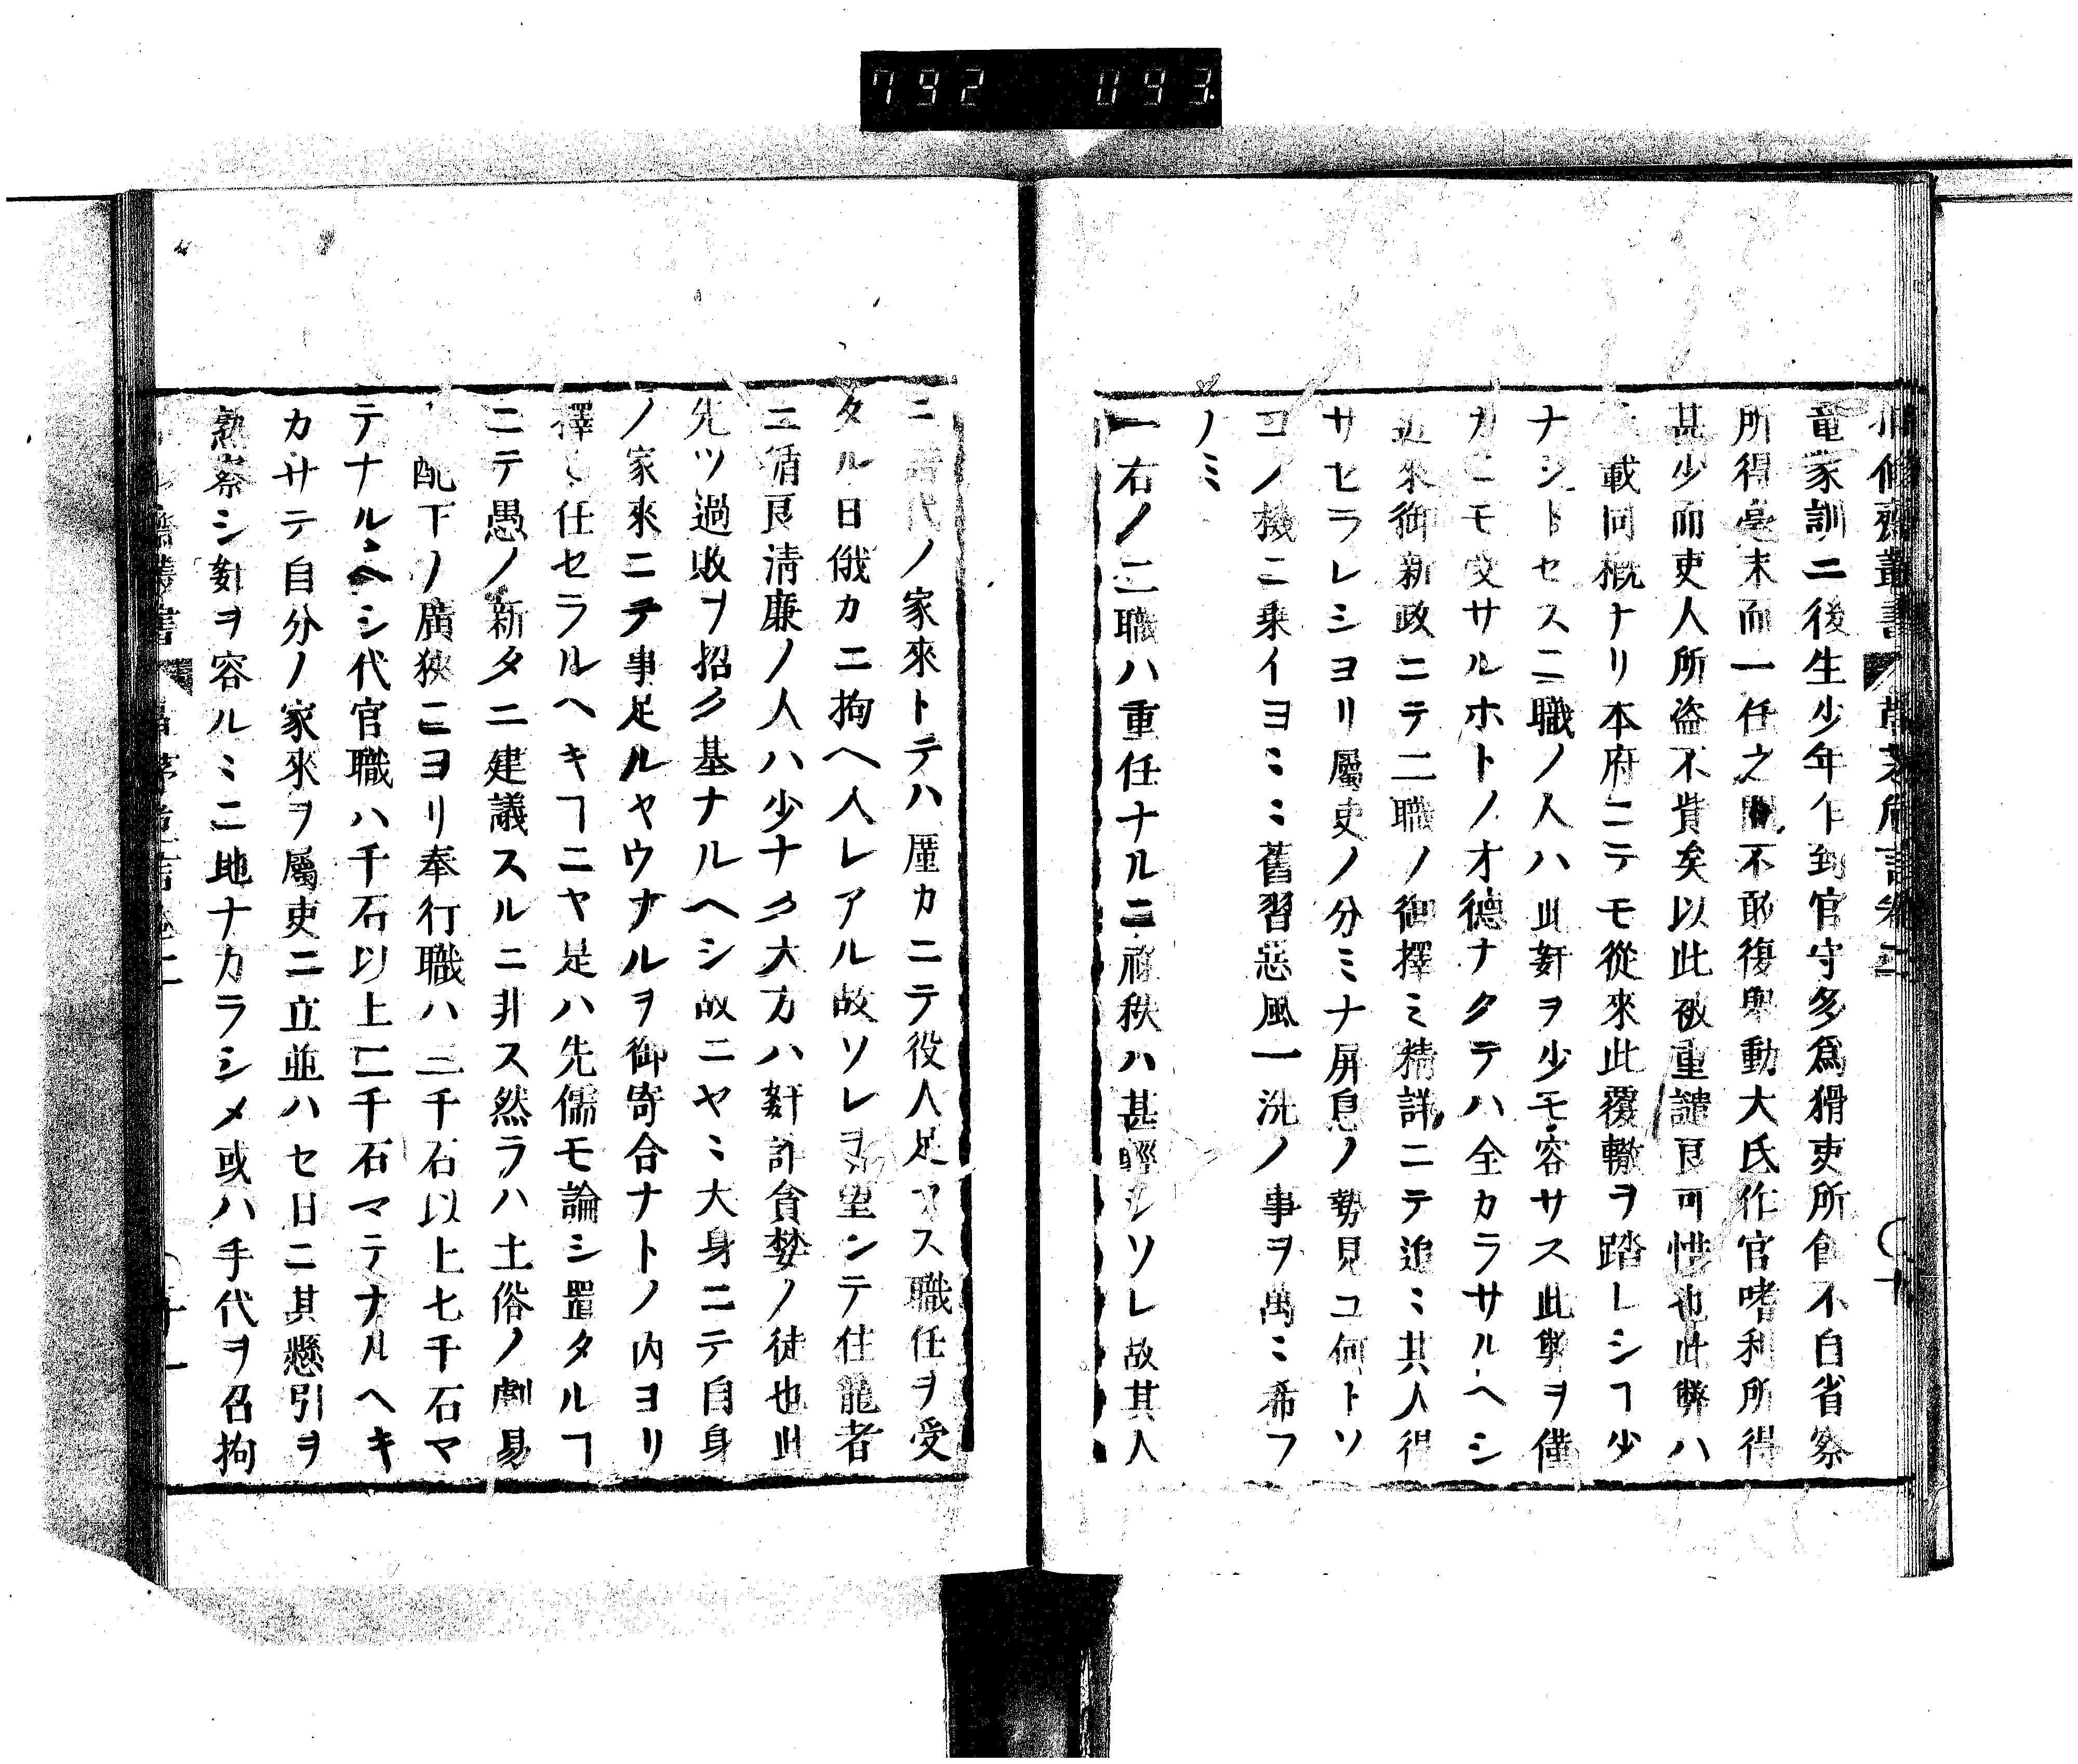 792 093
脩齋叢書 草茅危言卷二
竜家訓ニ後生少年乍到官守多爲猾吏所餌不自省察
所得毫末而一任之間不敢復擧動大氐作官嗜利所得
甚少而吏人所盗不貲矣以此被重譴良可惜也此弊ハ
載同概ナリ本府ニテモ從來此覆轍ヲ踏レシヿ少
ナシトセス二職ノ人ハ此姧ヲ少モ容サス此弊ヲ僅
カニモ受サルホトノ才德ナクテハ全カラサルヘシ
近來御新政ニテ二職ノ御擇ミ精詳ニテ追〻其人得
サセラレシヨリ屬吏ノ分ミナ屏息ノ勢見ユ何トソ
コノ機ニ乗イヨ〻〻舊習惡風一洗ノ事ヲ萬〻希フ
ノミ
一右ノ二職ハ重任ナルニ祿秩ハ甚輕シソレ故其人
ニ譜代ノ家來トテハ厪カニテ役人足ラス職任ヲ受
タル日俄カニ拘ヘ入レアル故ソレヲ望ンテ住寵者
ニ循良淸廉ノ人ハ少ナク大方ハ姧詐貪婪ノ徒也此
先ツ過敗ヲ招ク基ナルヘシ故ニヤ〻大身ニテ自身
ノ家來ニテ事足ルヤウナルヲ御寄合ナトノ内ヨリ
擇ミ任セラルヘキヿニヤ是ハ先儒モ論シ置タルヿ
ニテ愚ノ新タニ建議スルニ非ス然ラハ土俗ノ劇易
配下ノ廣狹ニヨリ奉行職ハ三千石以上七千石マ
テナルヘシ代官職ハ千石以上二千石マテナルヘキ
カサテ自分ノ家來ヲ屬吏ニ立並ハセ日ニ其懸引ヲ
熟察シ姧ヲ容ルヽニ地ナカラシメ或ハ手代ヲ召拘